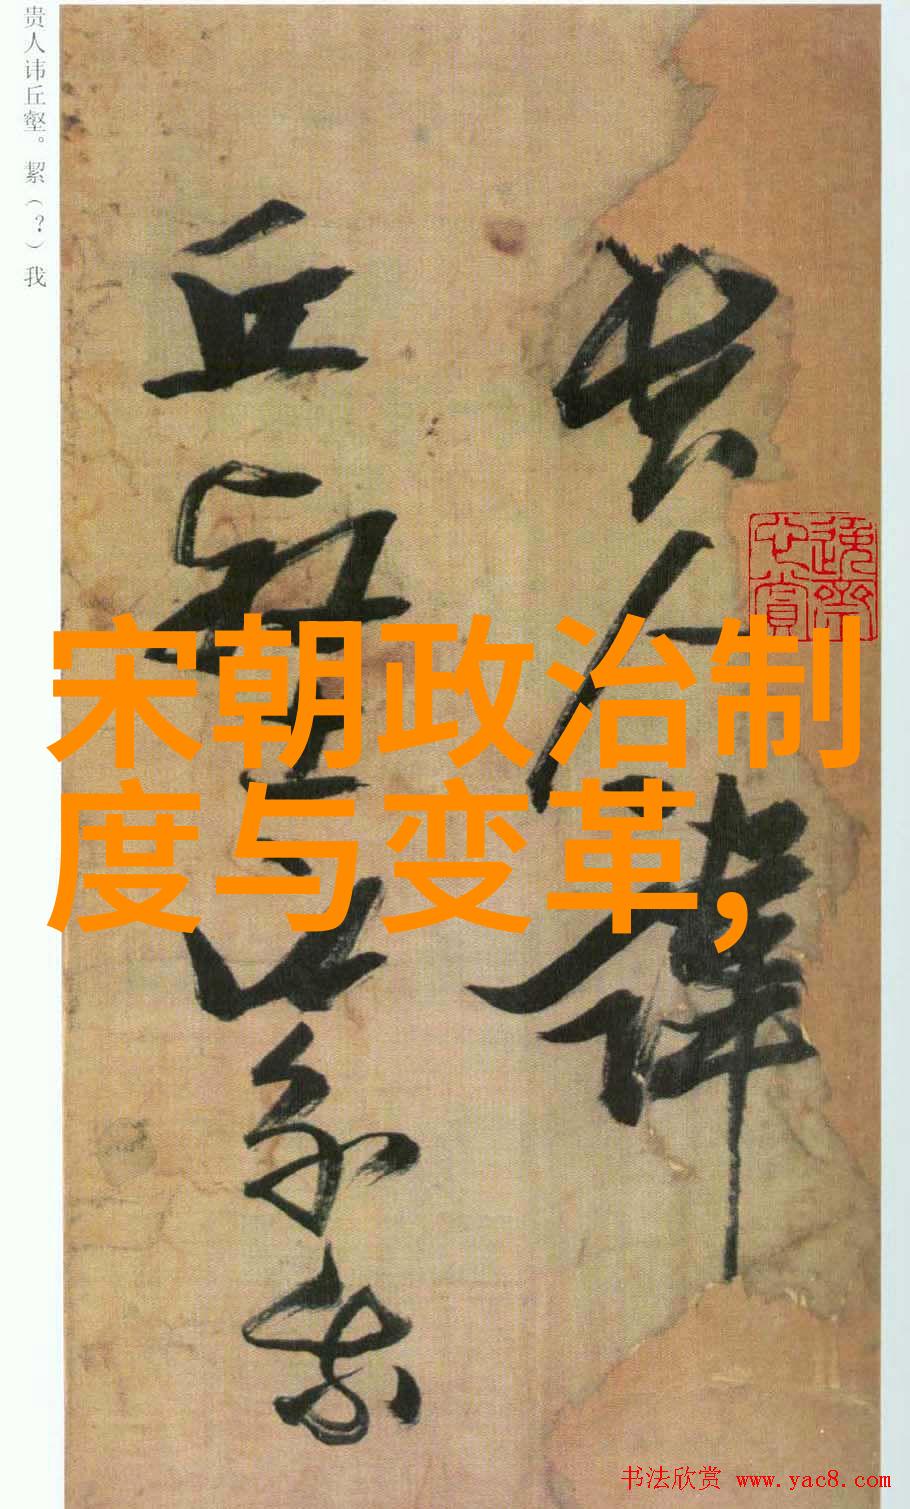 贵人讳丘壑。絜（？）我
贵人讳
丘壑絜我
宋朝政治制
度与变革,
书法欣赏 www.yac8.com